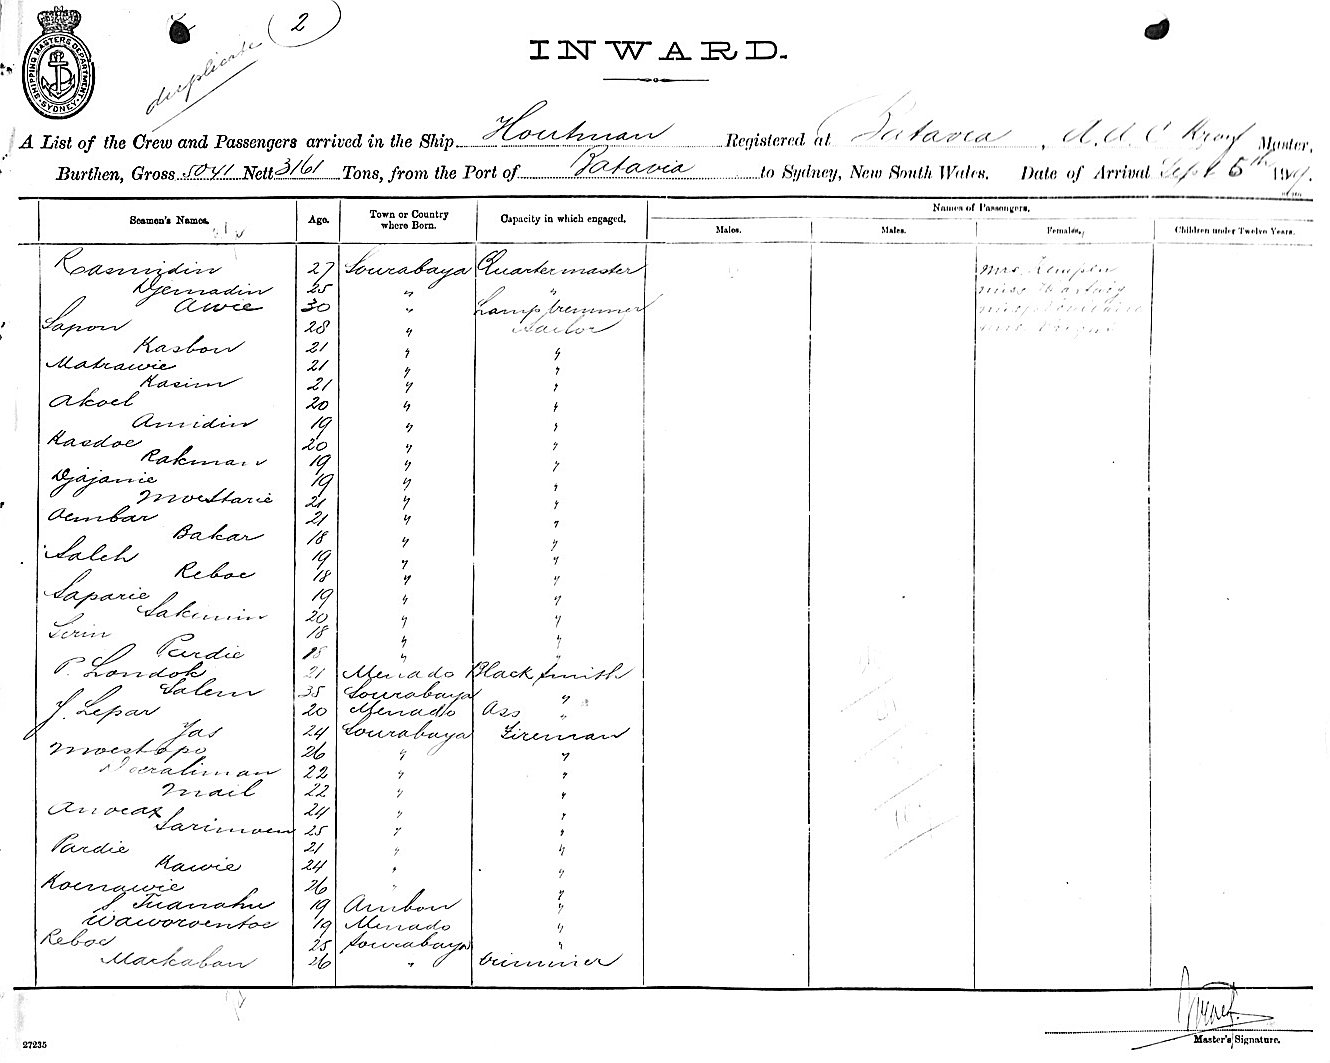 SHIPPING MASTERS DEPARTMENT SYDNEY
duplicate
2
INWARD.
A List of the Crew and Passengers arrived in the Ship Houtman Registered at Batavia, Master,
Burthen, Gross 5041 Nett 3161 Tons, from the Port of Batavia to Sydney, New South Wales. Date of Arrival Sept 5th 19
Seamen's Names. Age. Town or Country where Born. Capacity in which engaged. Names of Passengers.
Males. Males. Females. Children under Twelve Years.
Rasmidin 27 Sourabaya Quartermaster Mrs Kempen
Djemadin 25 " " Miss Hartwig
Awie 30 " Lamptrimmer Miss
Sapon 28 " Sailor
Kasbon 21 " "
Matrawie 21 " "
Kasim 21 " "
Akoel 20 " "
Amidin 19 " "
Kasdoe 20 " "
Rakman 19 " "
Djajanie 19 " "
Moestarie 21 " "
Oembar 21 " "
Bakar 18 " "
Saleh 19 " "
Reboe 18 " "
Saparie 19 " "
Sakimin 20 " "
Sirin 18 " "
Perdie 18 " "
P. Londok 21 Menado Blacksmith
Salem 35 Sourabaya "
J. Lepar 20 Menado Ass "
Jas 24 Sourabaya Fireman
Moestopo 26 " "
22 " "
Mail 22 " "
Anocax 24 " "
Sarimoen 25 " "
Pardie 21 " "
Kawie 24 " "
Koenawie 26 " "
S Tuanahu 19 Ambon "
Waworoentoe 19 Menado "
Reboe 25 Sourabaya "
Markaban 26 " trimmer
Master's Signature.
27235